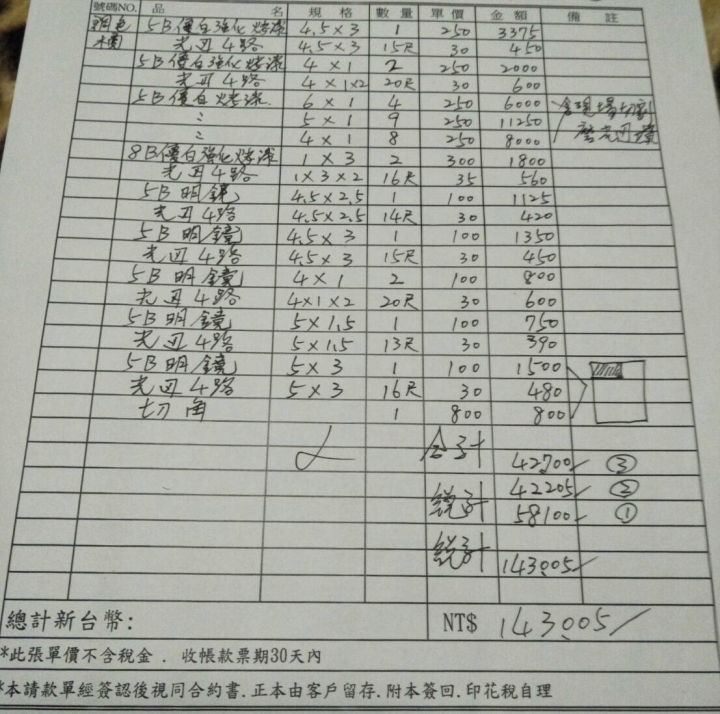 號碼NO. 品 名 規 格 數 量 單 價 金 額 備 註
5B優白強化烤漆 4.5×3 1 250 3375
光边4路 4.5×3 15尺 30 450
5B優白強化烤漆 4×1 2 250 2000
光边4路 4×1×2 20尺 30 600
5B優白烤漆 6×1 4 250 6000 含現場切割
〃 5×1 9 250 11250 磨光边費
〃 4×1 8 250 8000
8B優白強化烤漆 1×3 2 300 1800
光边4路 1×3×2 16尺 35 560
5B明鏡 4.5×2.5 1 100 1125
光边4路 4.5×2.5 14尺 30 420
5B明鏡 4.5×3 1 100 1350
光边4路 4.5×3 15尺 30 450
5B明鏡 4×1 2 100 800
光边4路 4×1×2 20尺 30 600
5B明鏡 5×1.5 1 100 750
光边4路 5×1.5 13尺 30 390
5B明鏡 5×3 1 100 1500
光边4路 5×3 16尺 30 480
切角 1 800 800
合計 42700/ ③
42205/ ②
總計 58100/ ①
總計 143005/
總計新台幣: NT$ 143005/
*此張單價不含稅金 . 收帳款票期30天內
*本請款單經簽認後視同合約書.正本由客戶留存.附本簽回.印花稅自理